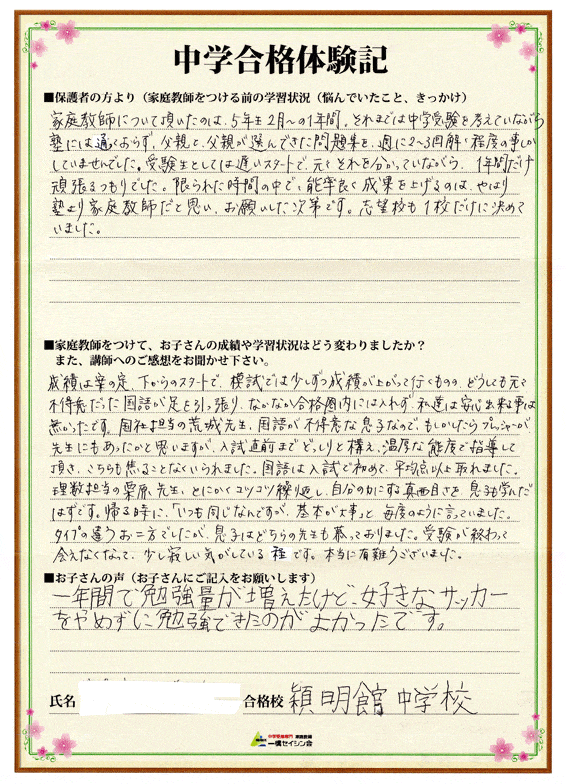 中学合格体験記
■保護者の方より（家庭教師をつける前の学習状況（悩んでいたこと、きっかけ）
家庭教師について頂いたのは、5年生2月〜の1年間。それまでは中学受験を考えていながら
塾には通っておらず、父親と、父親が選んできた問題集を、週に2〜3回解く程度の事しか
していませんでした。受験生としては遅いスタートで、元々それを分かっていながら、1年間だけ
頑張るつもりでした。限られた時間の中で、能率良く成果を上げるのは、やはり
塾より家庭教師だと思い、お願いした次第です。志望校も1校だけに決めて
いました。
■家庭教師をつけて、お子さんの成績や学習状況はどう変わりましたか？
また、講師へのご感想をお聞かせ下さい。
成績は案の定、下からのスタートで、模試では少しずつ成績が上がって行くものの、どうしても元々
不得意だった国語が足を引っ張り、なかなか合格圏内には入れず、私達は安心出来る事は
無かったです。国社担当の荒城先生、国語が不得意な息子なので、もしかしたらプレッシャーが
先生にもあったかと思いますが、入試直前までどっしりと構え、温厚な態度で指導して
頂き、こちらも焦ることなくいられました。国語は入試で初めて、平均点以上取れました。
理数担当の栗原先生、とにかくコツコツ繰り返し、自分の力にする真面目さを息子も学んだ
はずです。帰る時に、「いつも同じなんですが、基本が大事」と毎度のように言っていました。
タイプの違うお二方でしたが、息子はどちらの先生も慕っておりました。受験が終わって
会えなくなって、少し寂しい気がしている程です。本当に有難うございました。
■お子さんの声（お子さんにご記入をお願いします）
一年間で勉強量が増えたけど、好きなサッカー
をやめずに勉強できたのがよかったです。
氏名 合格校 穎明館中学校
中学受験専門 家庭教師
一橋セイシン会